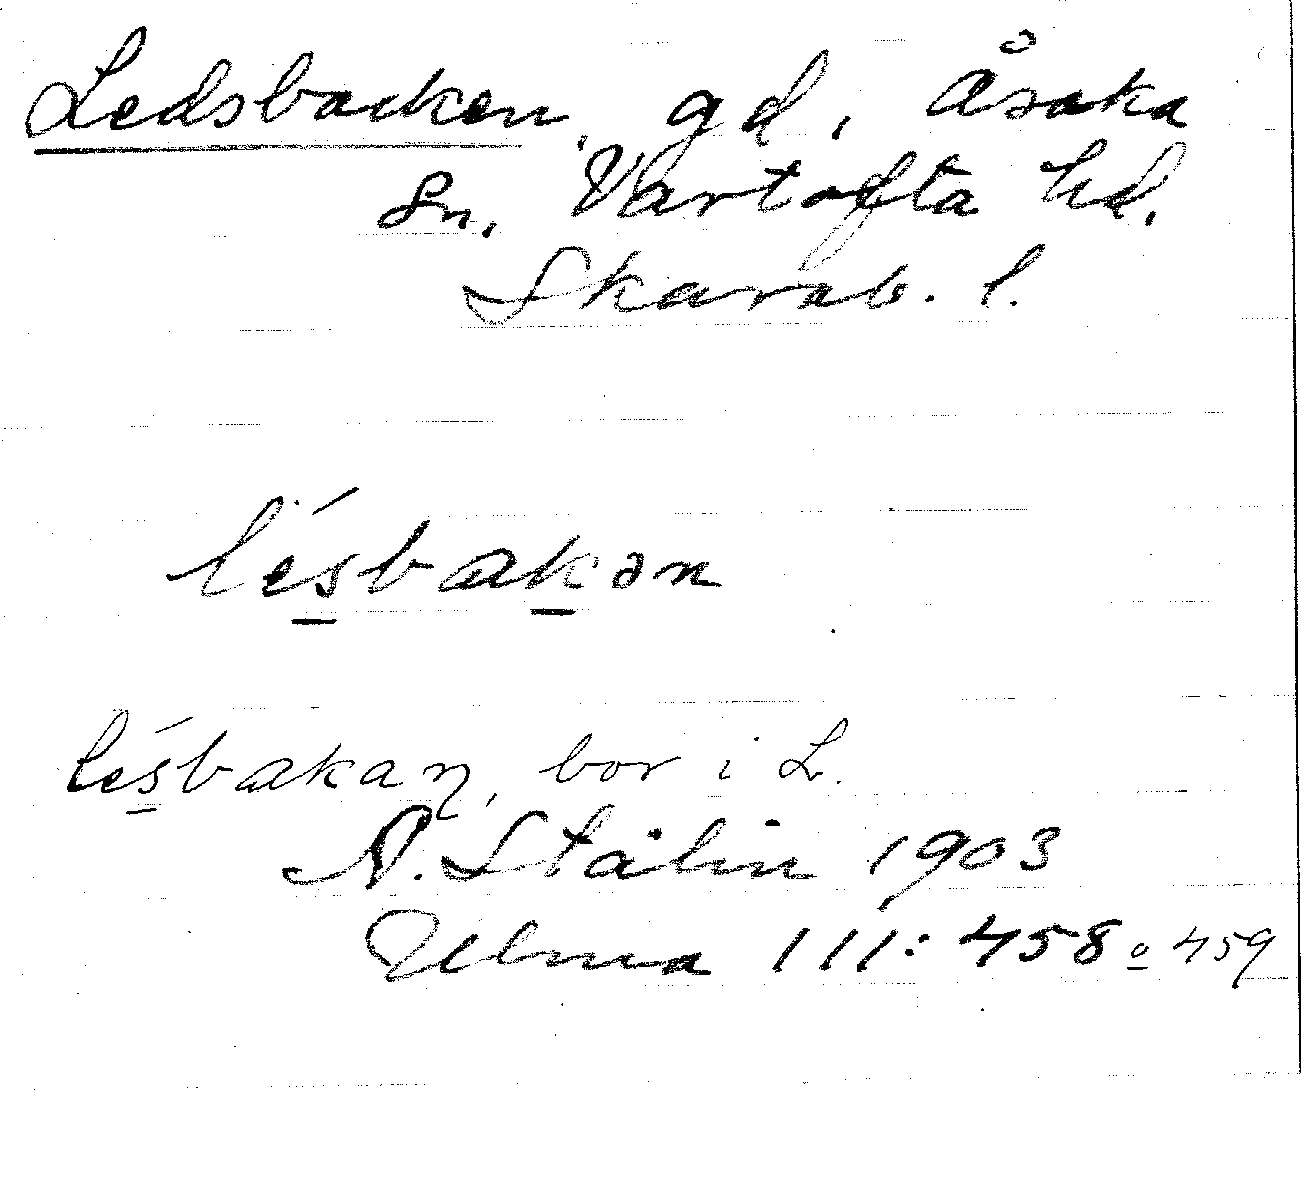 Ledsbacken, gd, Åsaka
sn, Vartofta hd.
Skarab. l.
lés̲bak̲ən
lés̲bakaŋ, bor i L.
N. Stålin 1903
Ulma 111: 458 o 459